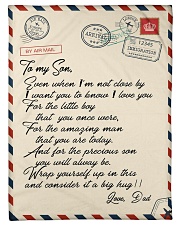 ARRIVAL
12345
IMMIGRATION
BY AIR MAIL
To my Son,
Even when I'm not close by
I want you to know I love you
For the little boy
that you once were,
For the amazing man
that you are today.
And for the precious son
you will alway be.
Wrap yourself up in this
and consider it a big hug!!
Love, Dad